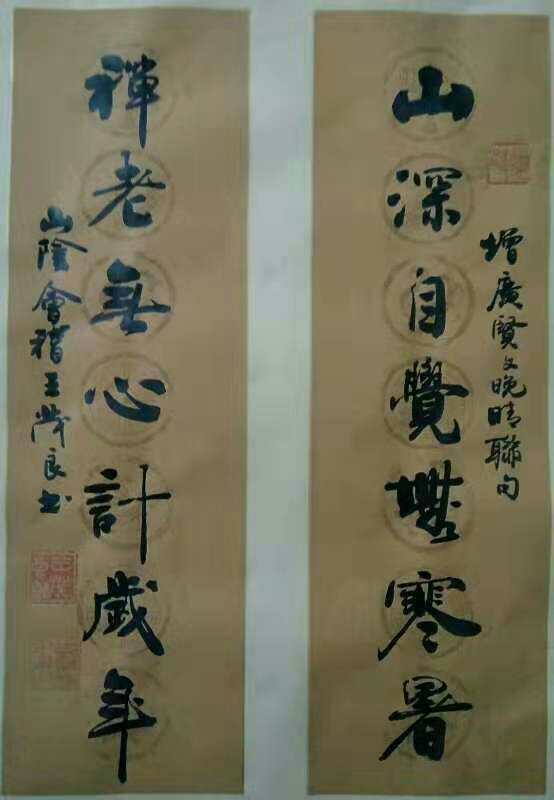 山深自覺無寒暑
增廣賢文晚晴聯句
禪老無心計歲年
山陰會稽王茂良书